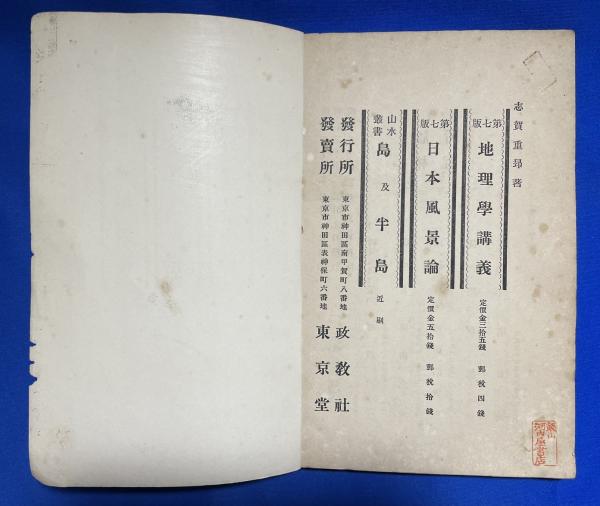 志賀重昻著
第七版 地理學講義 定價金三拾五錢 郵稅四錢
第七版 日本風景論 定價金五拾錢 郵稅拾錢
山水叢書 島及半島 近刷
發行所 東京市神田區南甲賀町八番地 政敎社
發賣所 東京市神田區表神保町六番地 東京堂
河內屋書店